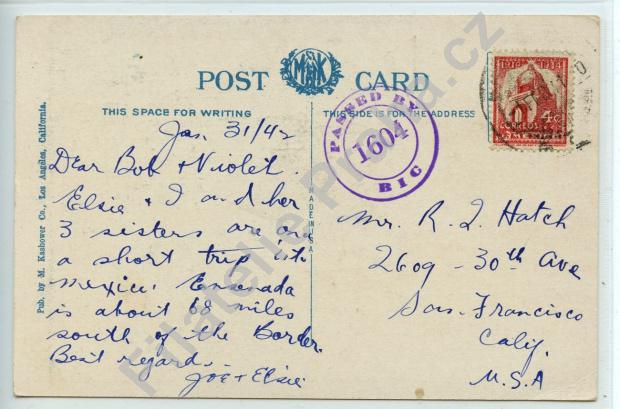 POST CARD
MK
THIS SPACE FOR WRITING
THIS SIDE IS FOR THE ADDRESS
PASSED BY
1604
BIC
4c
CORREOS
Jan. 31/42
Dear Bob & Violet
Elsie & I and her
3 sisters are on
a short trip into
Mexico. Ensenada
is about 68 miles
south of the Border.
Best regards.
Joe & Elsie
Mr. R. J. Hatch
2609 - 30th Ave
San Francisco
Calif.
U.S.A
Pub. by M. Kashower Co., Los Angeles, California.
MADE IN USA